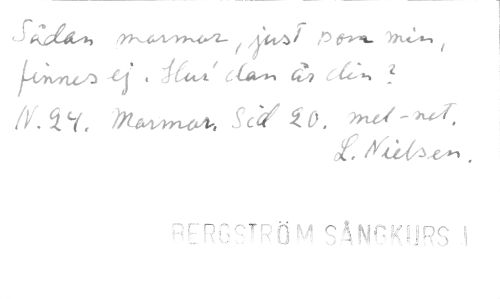 Sådan marmor, just som min,
finnes ej. Hur'dan är din?
N. 24. Marmor. Sid 20. mel-net.
L. Nielsen.
BERGSTRÖM SÅNGKURS I